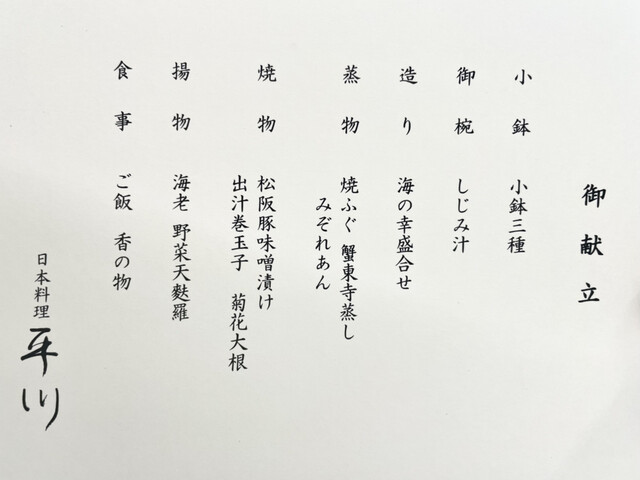 御献立
小鉢 小鉢三種
御椀 しじみ汁
造り 海の幸盛合せ
蒸物 焼ふぐ 蟹東寺蒸し
みぞれあん
焼物 松阪豚味噌漬け
出汁巻玉子 菊花大根
揚物 海老 野菜天麩羅
食事 ご飯 香の物
日本料理 平川